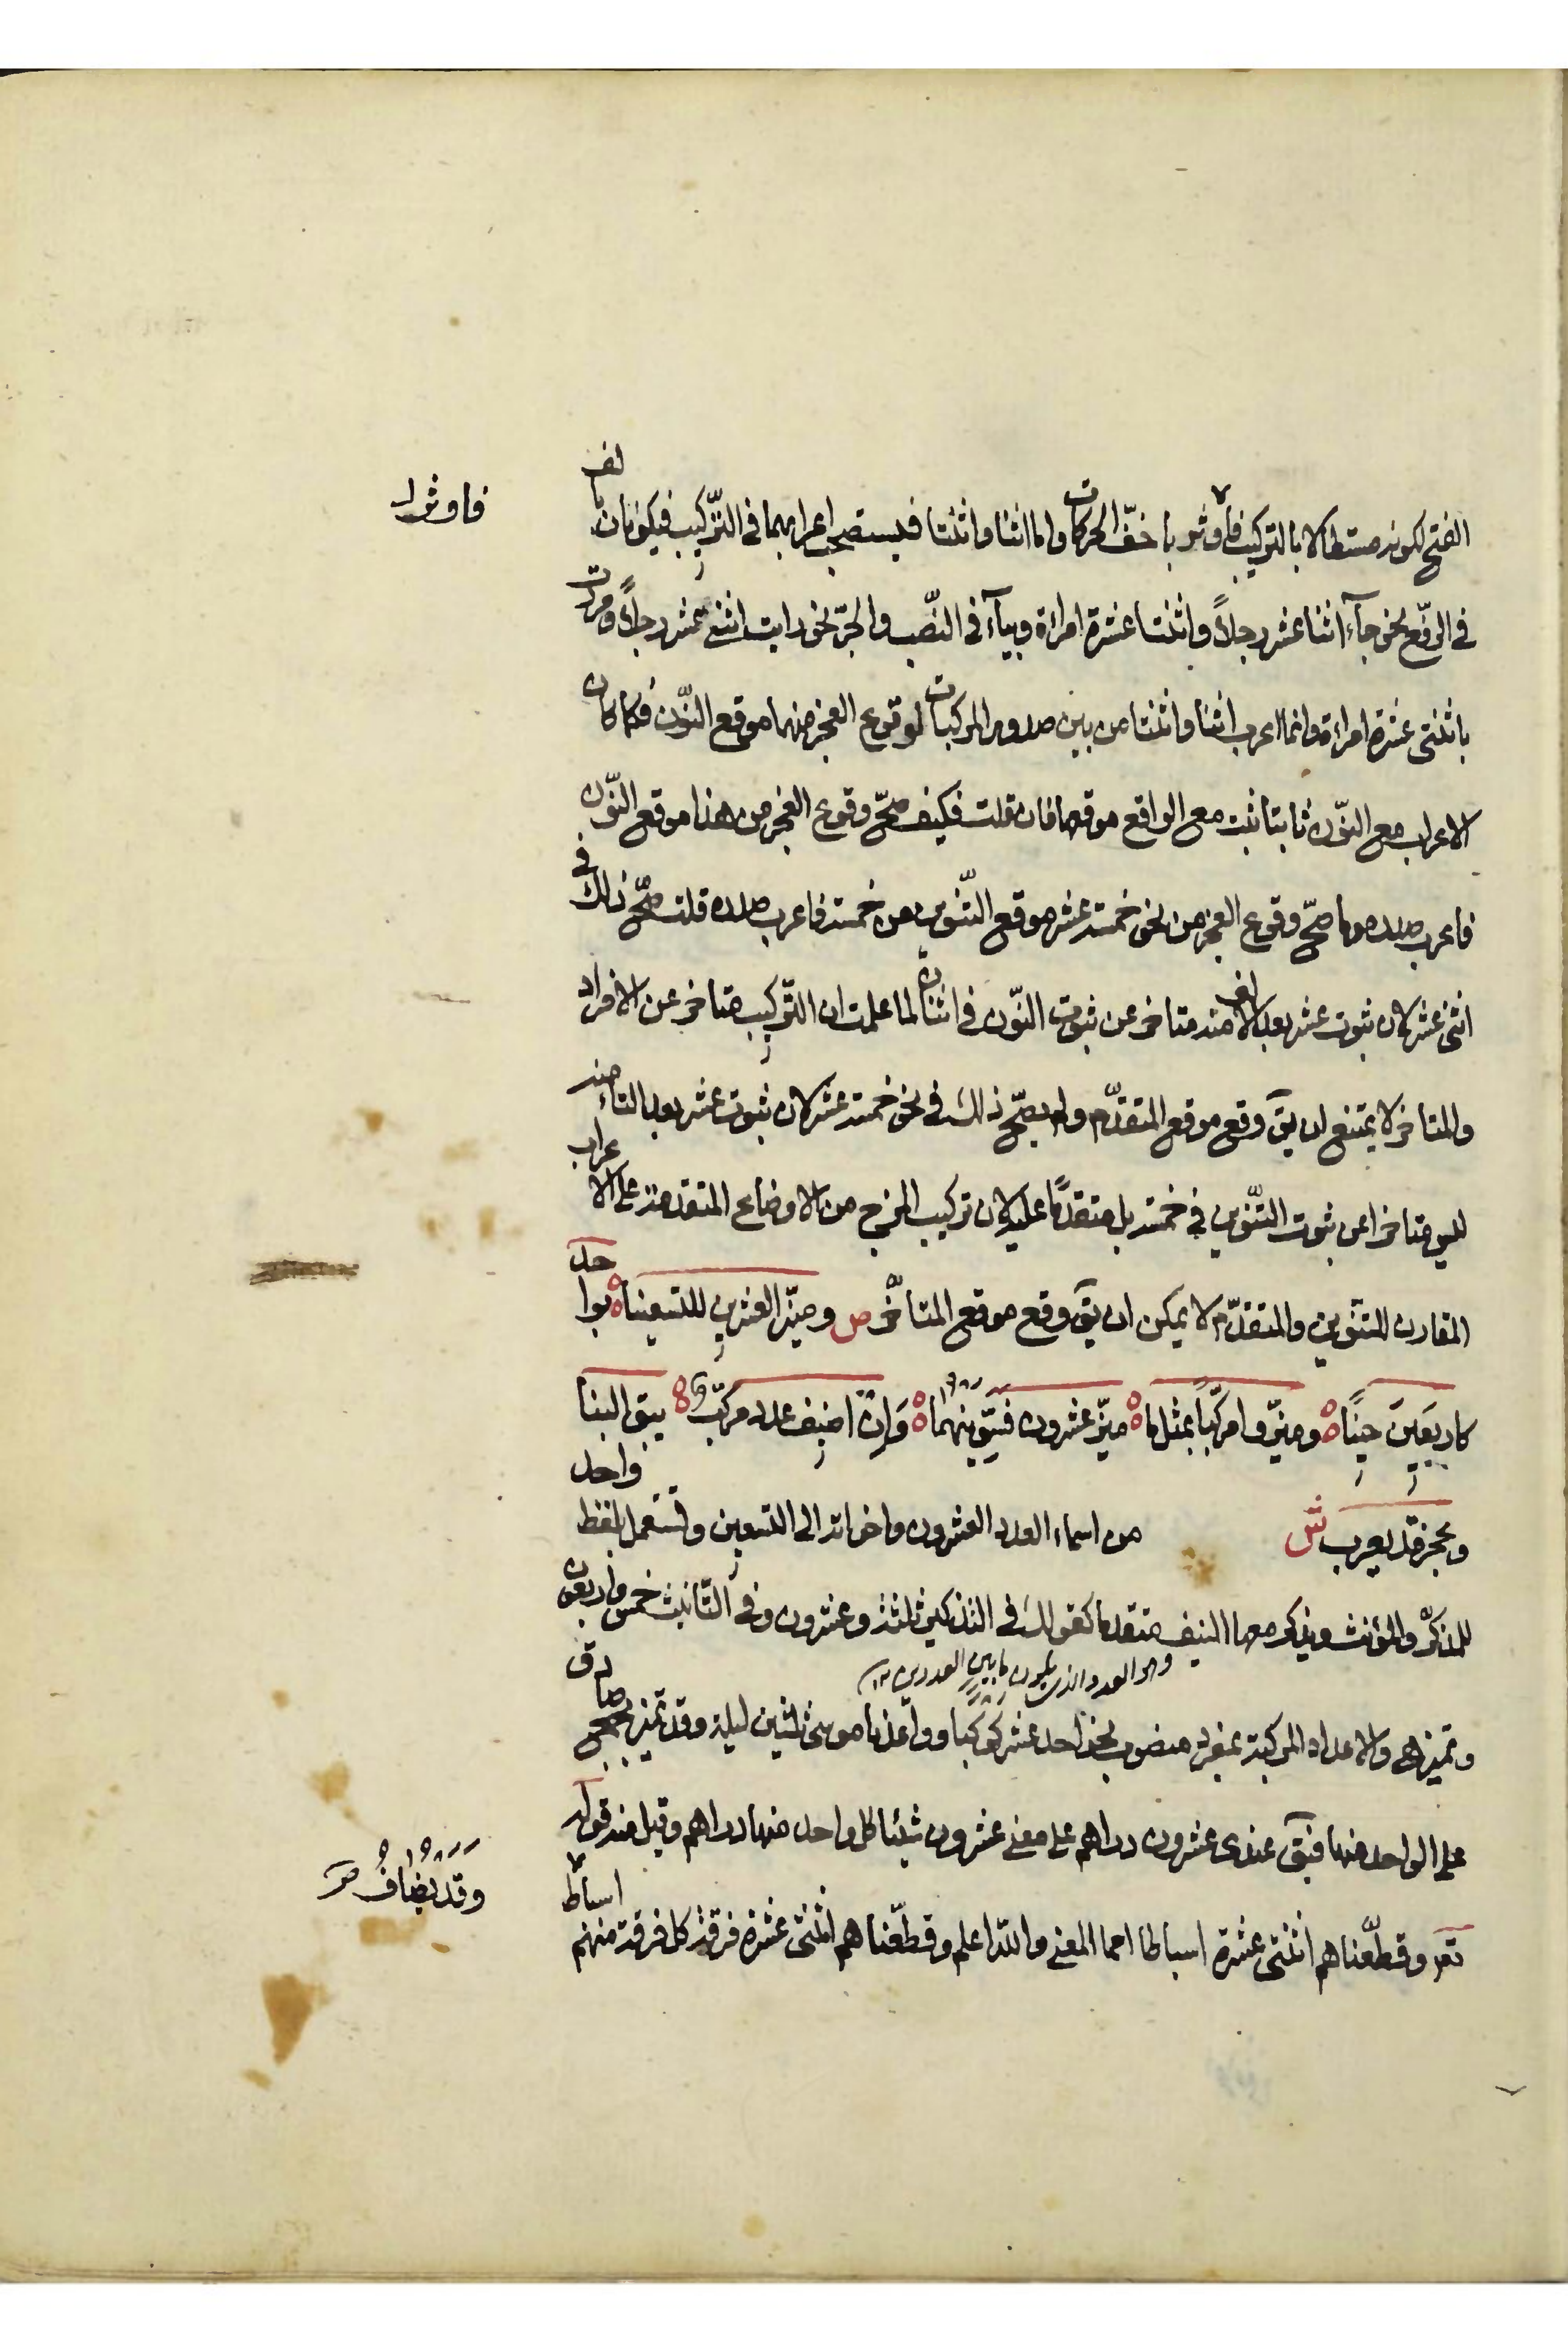 الفتح لكونه مستطالا بالتركيب فاوثر باخفّ الحركات واما اثنا واثنتا فيستصحب اعرابهما فى التّركيب فيكونان بالف
فاوثرا
فى الرّفع نحو جآء اثنا عشر رجلاً واثنتا عشرة امراءة وبيآء فى النّصب والجرّ نحو رايت اثنى عشر رجلاً ومررت
باثنتى عشرة امراءة وانما اعرب اثنا واثنتا من بين صدور المركبات لوقوع العجز منهما موقع النّون فكما كان
الاعراب مع النّون ثابتا ثبت مع الواقع موقعها فان قلت فكيف صحّ وقوع العجز من هذا موقع النّون
فاعرب صدره وما صحّ وقوع العجز من نحو خمسة عشر موقع التّنوين من خمسة فاعرب صدره قلت صحّ ذلك فى
اثنى عشر لان ثبوت عشر بعد الالف منه متاخر عن ثبوت النّون فى اثنان لما علمت ان التّركيب متاخر عن الافراد
والمتاخر لا يمتنع ان يقَ وقع موقع المتقدّم ولم يصحّ ذلك فى نحو خمسة عشر لان ثبوت عشر بعد التاء منه
ليس متاخرا عن ثبوت التّنوين فى خمسة بل متقدّما عليه لان تركيب المزج من الاوضاع المتقدمة على الاعراب
المقارن للتنوين والمتقدّم لا يمكن ان يقَ وقع موقع المتاخّر ص وميّز العشرين للتسعينا بواحد
كاربعين حينًا وميّزوا مركّباً بمثل ما ميّز عشرون فسوّينهما وان اضيف عدد مركّب يبق البنا
وعجز قد يعرب ش من اسماء العدد العشرون واخواته الى التسعين وتستعمل بلفظ واحد
للمذكّر والمؤنث ويذكر معها النيف متقدما كقولك فى التذكير ثلثة وعشرون وفى التّانيث خمس واربعون
وهو العدد الذى يكون ما بين العددين
وتميز هى والاعداد المركبة بمفرد منصوب نحو احد عشر كوكبا وواعدنا موسى ثلثين ليلة وقد تميز بجمع صادق
على الواحد منها فيقَ عندى عشرون دراهم على معنى عشرون شيئا كل واحد منها دراهم وقيل منه قوله
وقد يضاف
تعر وقطّعناهم اثنتى عشرة اسباطا امما المعنى واللّه اعلم وقطّعناهم اثنتى عشرة فرقة كل فرقة منهم اسباط